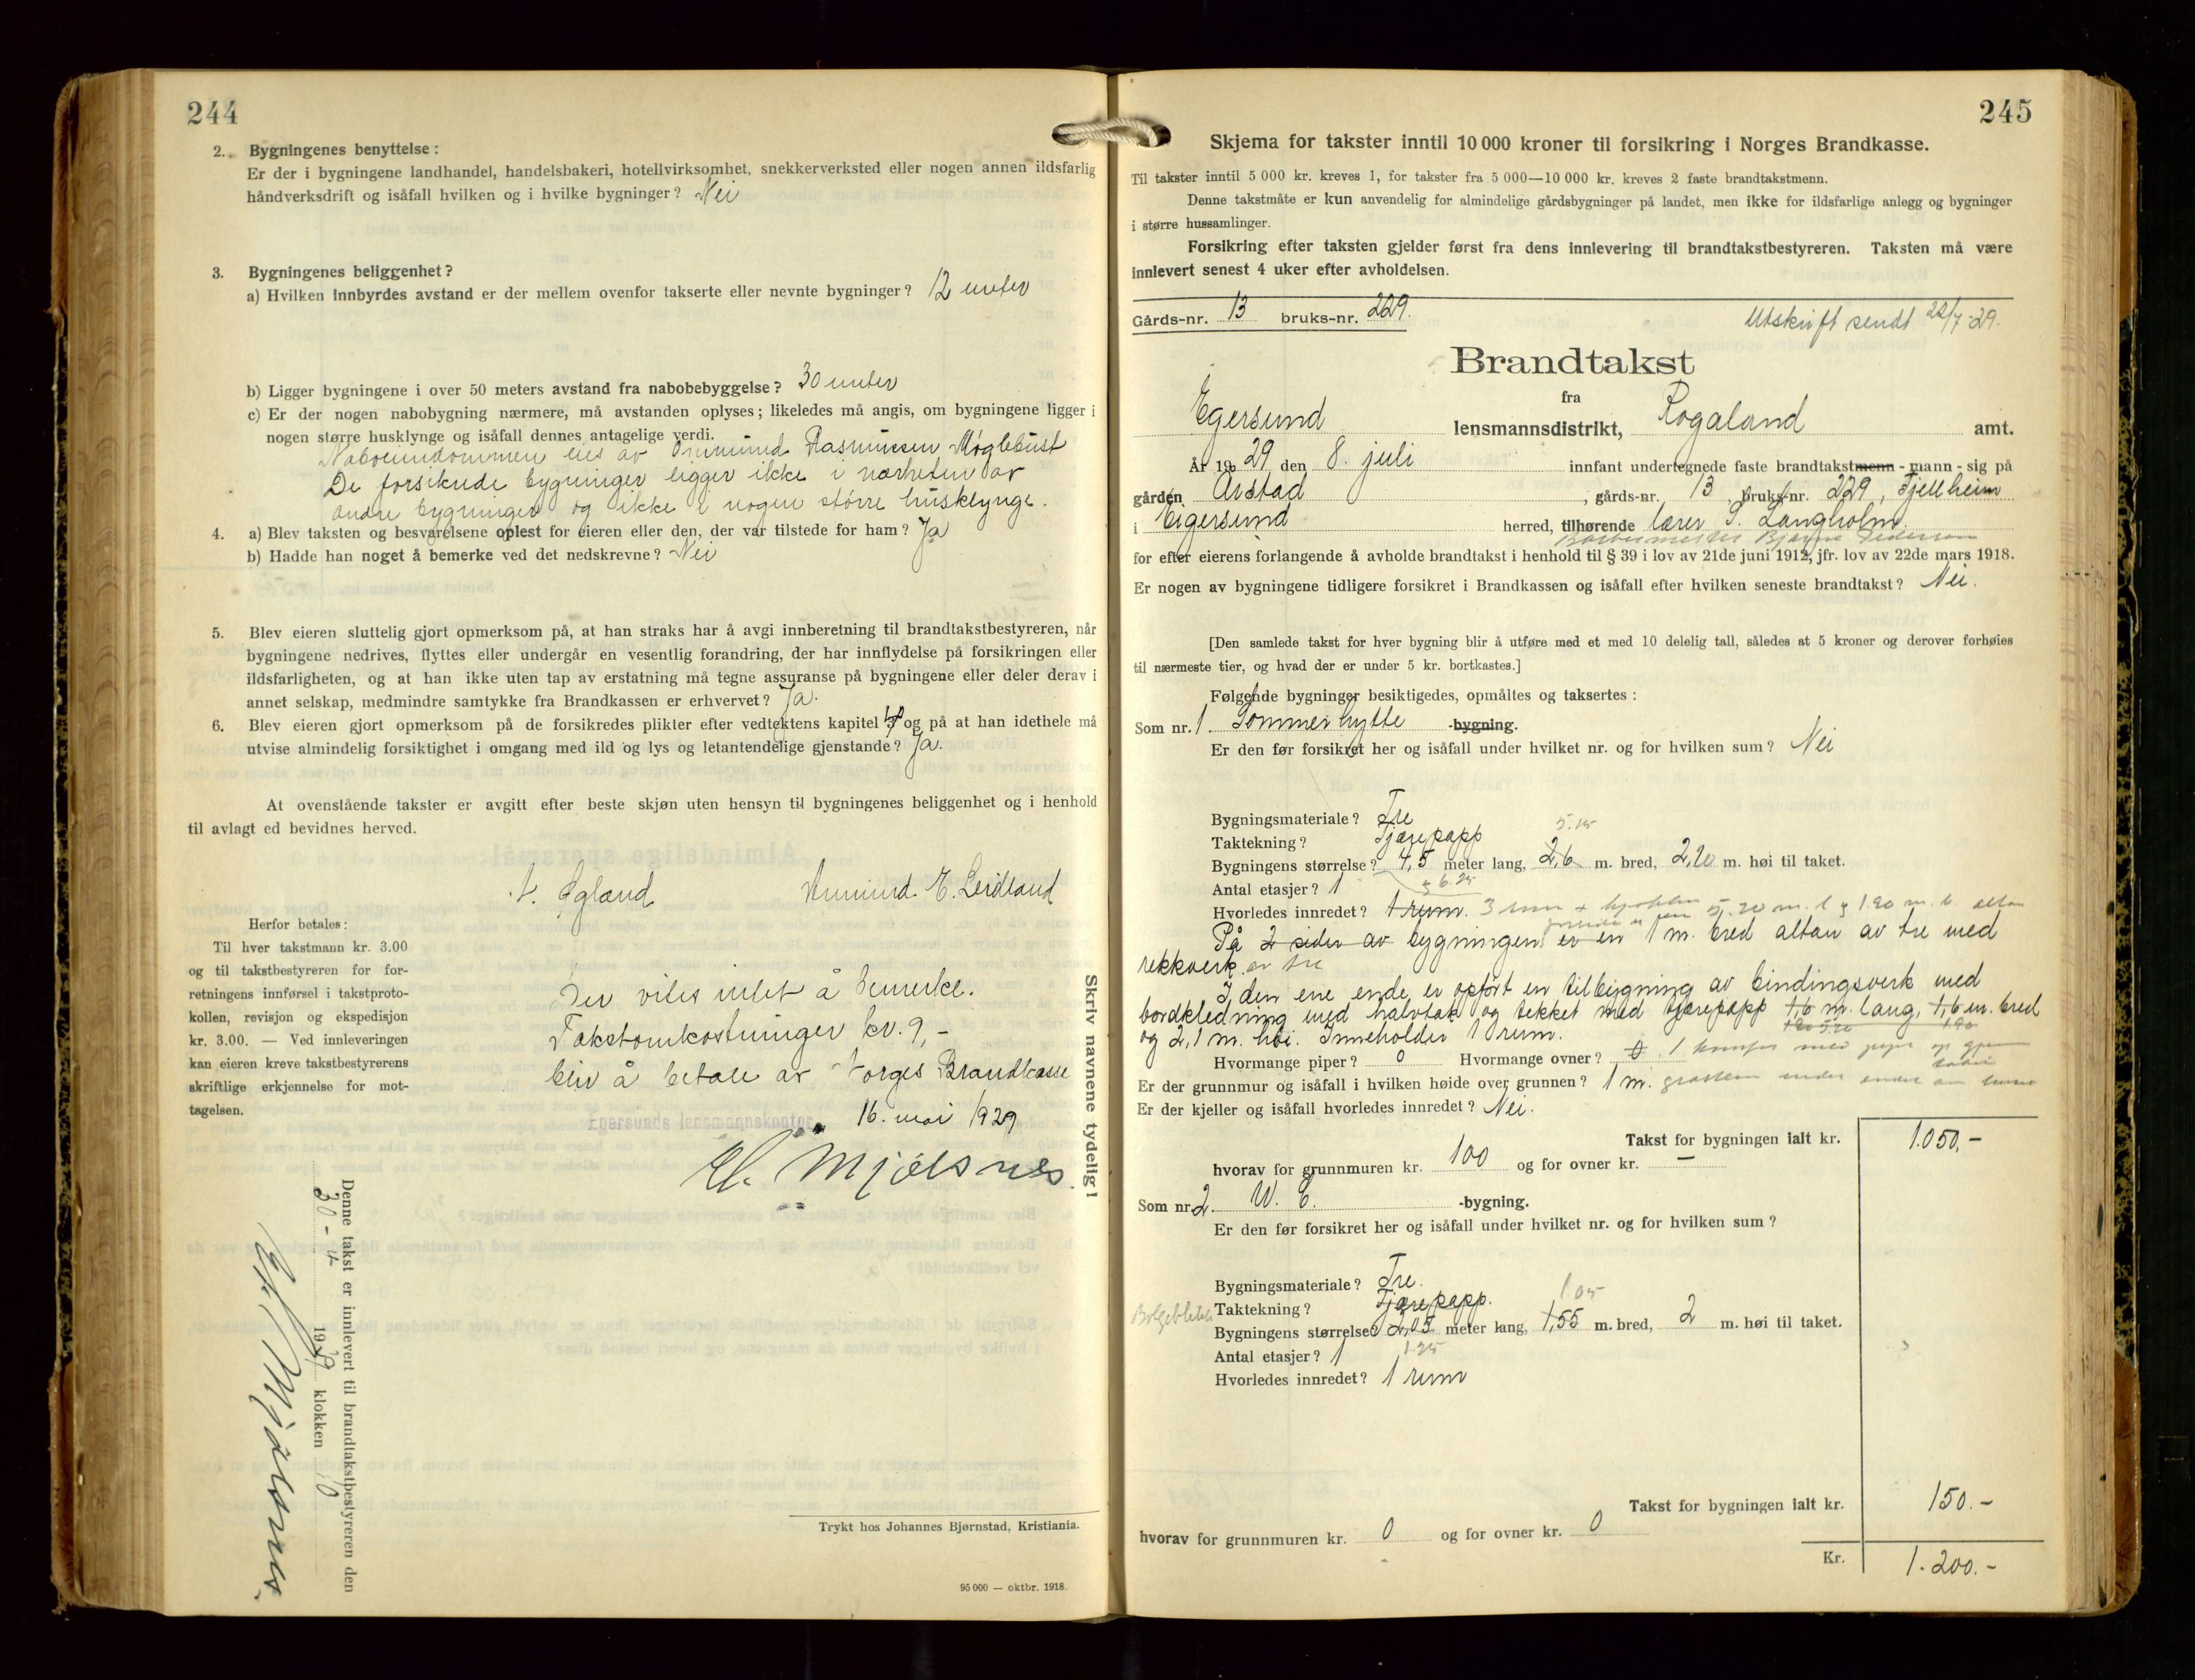 244
2. Bygningenes benyttelse:
Er der i bygningene landhandel, handelsbakeri, hotellvirksomhet, snekkerverksted eller nogen annen ildsfarlig
håndverksdrift og isåfall hvilken og i hvilke bygninger? Nei
3. Bygningenes beliggenhet?
a) Hvilken innbyrdes avstand er der mellem ovenfor takserte eller nevnte bygninger? 12 meter
b) Ligger bygningene i over 50 meters avstand fra nabobebyggelse? 30 meter
c) Er der nogen nabobygning nærmere, må avstanden oplyses; likeledes må angis, om bygningene ligger i
nogen større husklynge og isåfall dennes antagelige verdi.
Naboeiendommen eies av Ommund Rasmussen Møglebust
De forsikrede bygninger ligger ikke i nærheten av
andre bygninger og ikke i nogen större husklynge.
4. a) Blev taksten og besvarelsene oplest for eieren eller den, der var tilstede for ham? Ja
b) Hadde han noget å bemerke ved det nedskrevne? Nei
5. Blev eieren sluttelig gjort opmerksom på, at han straks har å avgi innberetning til brandtakstbestyreren, når
bygningene nedrives, flyttes eller undergår en vesentlig forandring, der har innflydelse på forsikringen eller
ildsfarligheten, og at han ikke uten tap av erstatning må tegne assuranse på bygningene eller deler derav i
annet selskap, medmindre samtykke fra Brandkassen er erhvervet? Ja.
6. Blev eieren gjort opmerksom på de forsikredes plikter efter vedtektens kapitel og på at han idethele må
utvise almindelig forsiktighet i omgang med ild og lys og letantendelige gjenstande? Ja.
At ovenstående takster er avgitt efter beste skjøn uten hensyn til bygningenes beliggenhet og i henhold
til avlagt ed bevidnes herved.
Ægland Ammund E. Leidland
Herfor betales:
Til hver takstmann kr. 3.00
og til takstbestyreren for for-
retningens innførsel i takstproto-
kollen, revisjon og ekspedisjon
kr. 3.00. — Ved innleveringen
kan eieren kreve takstbestyrerens
skriftlige erkjennelse for mot-
tagelsen.
Der vites intet å bemerke.
Takstomkostninger kr. 9,-
bliv å betale av Norges Brandkasse
Egersunds lensmannskontor, 16. mai 1929
H. Mjölsnes.
Skriv navnene tydelig!
Denne takst er innlevert til brandtakstbestyreren den
30 - 4 1929 klokken 10
H. Mjölsnes.
Trykt hos Johannes Bjørnstad, Kristiania.
95 000 — oktbr. 1918.
245
Skjema for takster inntil 10 000 kroner til forsikring i Norges Brandkasse.
Til takster inntil 5 000 kr. kreves 1, for takster fra 5 000—10 000 kr. kreves 2 faste brandtakstmenn.
Denne takstmåte er kun anvendelig for almindelige gårdsbygninger på landet, men ikke for ildsfarlige anlegg og bygninger
i større hussamlinger.
Forsikring efter taksten gjelder først fra dens innlevering til brandtakstbestyreren. Taksten må være
innlevert senest 4 uker efter avholdelsen.
Gårds-nr. 13 bruks-nr. 229.
Utskrift sendt 22/7-29.
Brandtakst
fra
Egersund lensmannsdistrikt, Rogaland amt.
År 1929 den 8. juli innfant undertegnede faste brandtakstmenn - mann - sig på
gården Årstad, gårds-nr. 13, bruks-nr. 229, Fjellheim
i Eigersund herred, tilhørende lærer S. Langholm.
Barbermester Bjarne Pedersen
for efter eierens forlangende å avholde brandtakst i henhold til § 39 i lov av 21de juni 1912, jfr. lov av 22de mars 1918.
Er nogen av bygningene tidligere forsikret i Brandkassen og isåfall efter hvilken seneste brandtakst? Nei.
[Den samlede takst for hver bygning blir å utføre med et med 10 delelig tall, således at 5 kroner og derover forhøies
til nærmeste tier, og hvad der er under 5 kr. bortkastes.]
Følgende bygninger besiktigedes, opmåltes og taksertes:
Som nr. 1 Sommerhytte -bygning.
Er den før forsikret her og isåfall under hvilket nr. og for hvilken sum? Nei
Bygningsmateriale? Tre
Taktekning? Tjærepapp
Bygningens størrelse? 4,5 meter lang, 2,6 m. bred, 2,20 m. høi til taket.
Antal etasjer? 1 6.25
Hvorledes innredet? 1 rum. 3 rum + kjøkken 5.20 m. l 1.20 m. b. altan
På 2 sider av bygningen er en 1 m. bred altan av tre med
rekkverk av tre
I den ene ende er opfört en tilbygning av bindingsverk med
bordkledning med halvtak og tekket med tjærepapp 1,6 m. lang, 1,6 m. bred
og 2,1 m. höi. Inneholder 1 rum. 5.20 1.20
Hvormange piper? 0 Hvormange ovner? 0. 1 komfur med
Er der grunnmur og isåfall i hvilken høide over grunnen? 1 m. gråsten under
Er der kjeller og isåfall hvorledes innredet? Nei.
Takst for bygningen ialt kr. 1.050,-
hvorav for grunnmuren kr. 100 og for ovner kr. —
Som nr. 2. W. C. -bygning.
Er den før forsikret her og isåfall under hvilket nr. og for hvilken sum?
Bygningsmateriale? Tre.
Bølgeblekk Taktekning? Tjærepapp. 1.05
Bygningens størrelse? 2,05 meter lang, 1,55 m. bred, 2 m. høi til taket.
Antal etasjer? 1 1.25
Hvorledes innredet? 1 rum
Takst for bygningen ialt kr. 150.-
hvorav for grunnmuren kr. 0 og for ovner kr. 0
Kr. 1.200.-